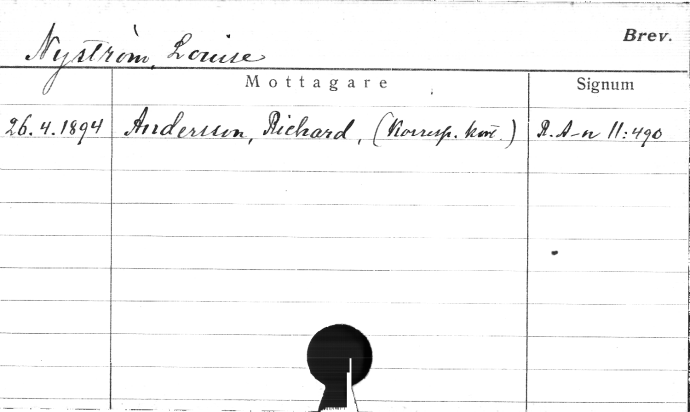 Brev.
Nyström, Louise
Mottagare Signum
26.4.1894 Andersson, Richard, (Korresp. kort.) R. A-n 11:490